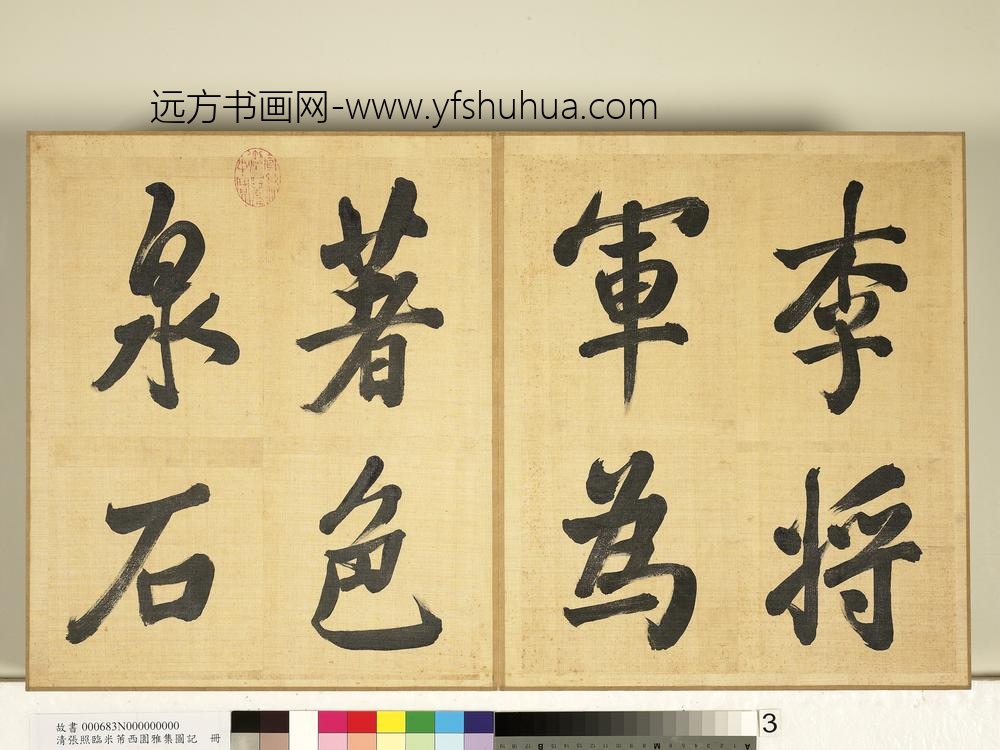 远方书画网-www.yfshuhua.com
李将
軍為
著色
泉石
故書 000683N000000000
清張照臨米芾西園雅集圖記 冊
3